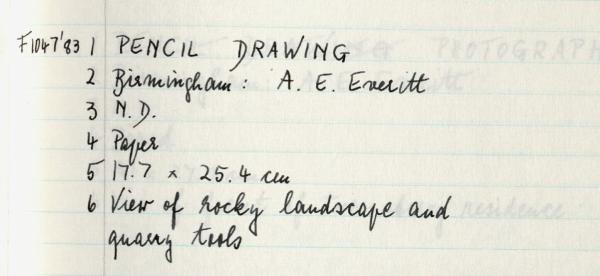 F1047'83 1 PENCIL DRAWING
2 Birmingham: A. E. Everitt
3 N.D.
4 Paper
5 17.7 x 25.4 cm
6 View of rocky landscape and
quarry tools